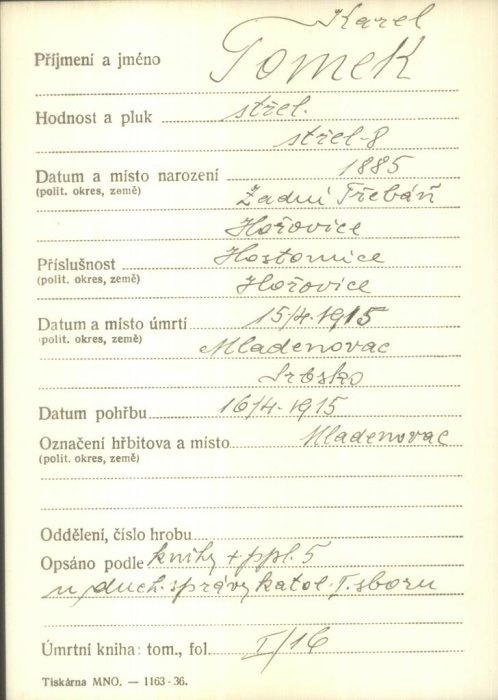 Karel
Příjmení a jméno Tomek
Hodnost a pluk střel.
střel-8
Datum a místo narození 1885
(polit. okres, země) Zadní Třebáň
Hořovice
Příslušnost Hostomice
(polit. okres, země) Hořovice
Datum a místo úmrtí 15/4.1915
(polit. okres, země) Mladenovac
Srbsko
Datum pohřbu 16/4.1915
Označení hřbitova a místo Mladenovac
(polit. okres, země)
Oddělení, číslo hrobu
Opsáno podle knihy + ppl. 5
u duch. správy katol. I. sboru
Úmrtní kniha: tom., fol. I/16
Tiskárna MNO. — 1163-36.